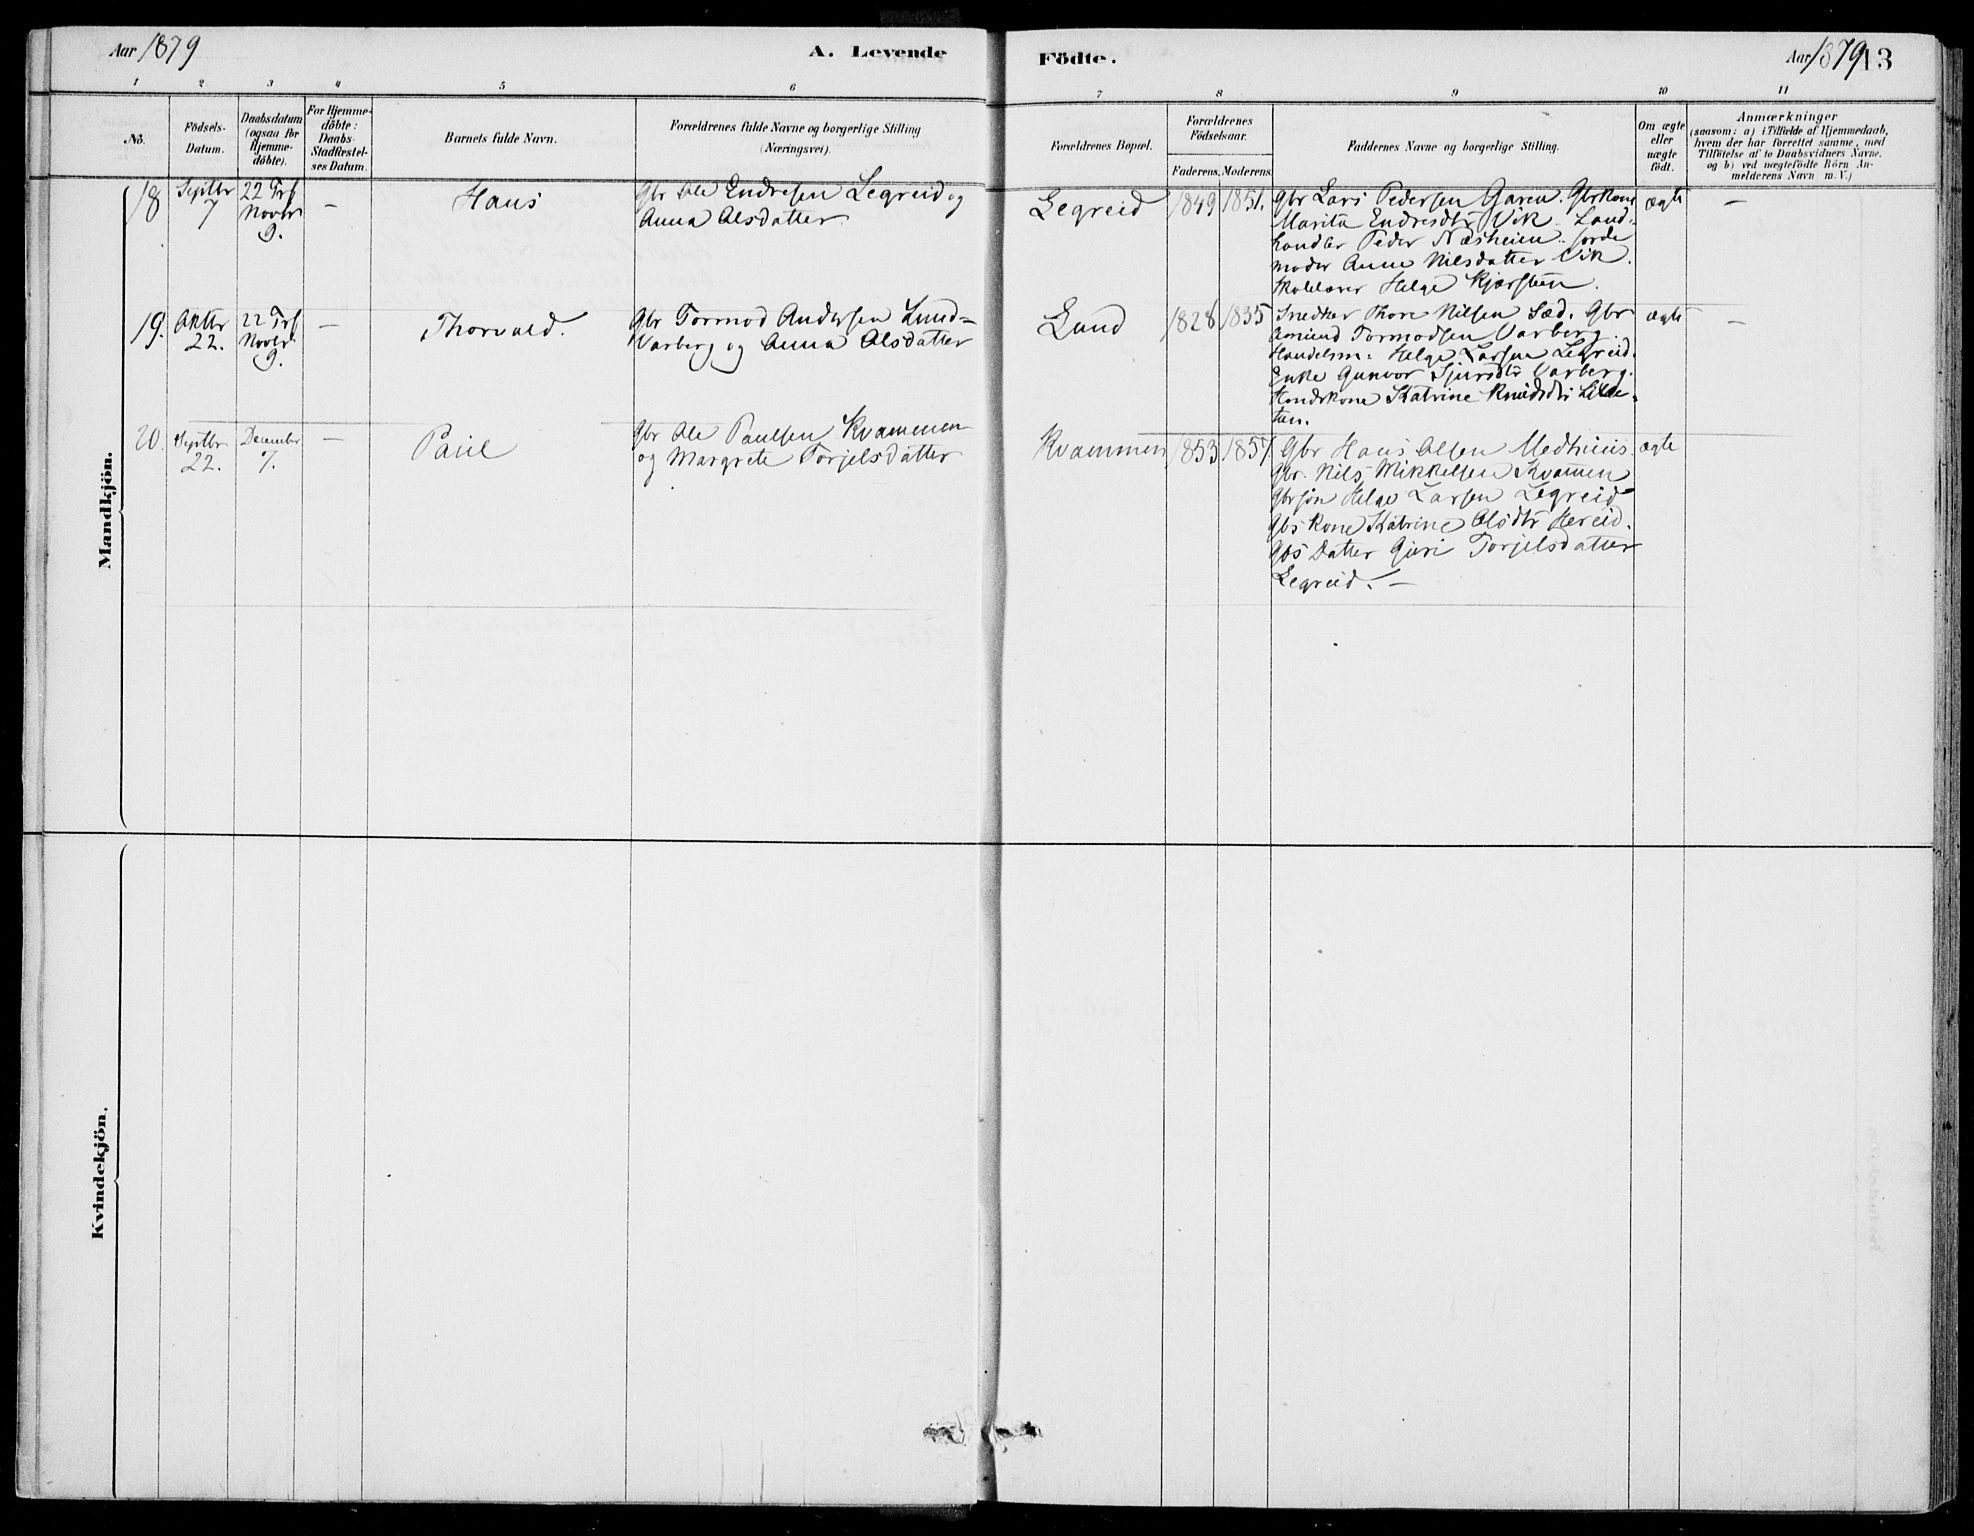 Aar 1879
A. Levende
Födte.
Aar 1879
13
1 2 3 4 5 6 7 8 9 10 11
No.
Födsels-
Datum.
Daabsdatum
(ogsaa for
Hjemme-
döbte).
For Hjemme-
döbte:
Daabs-
Stadfæstel-
ses Datum.
Barnets fulde Navn.
Forældrenes fulde Navne og borgerlige Stilling
(Næringsvei).
Forældrenes Bopæl.
Forældrenes
Födselsaar.
Faderens. Moderens.
Faddernes Navne og borgerlige Stilling.
Om ægte
eller
uægte
födt.
Anmærkninger
(saasom: a) i Tilfælde af Hjemmedaab,
hvem der har forrettet samme, med
Tilföielse af to Daabsvidners Navne,
og b) ved uægtefödte Börn An-
melderens Navn m. V.)
Mandkjön.
18
Septbr
7
22 Trf
Novbr
9.
—
Hans
Gbr Ole Endresen Legreid og
Anna Olsdatter
Legreid
1849 1851.
Gbr Lars Pedersen Garen. Gbrkone
Marita Endresdtr Vik. Land-
handler Peder Næsheim. Jorde
moder Anna Nilsdatter Vik.
Skolelærer Helge Kjærsteen.
ægte
—
19.
Oktbr
22.
22 Trf
Novbr
9.
—
Thorvald.
Gbr Tormod Andersen Lund=
Varberg og Anna Olsdatter
Lund
1828 1835
Snedker Thore Nilsen Sæd. Gbr
Amund Tormodsen Varberg.
Handelsm. Helge Larsen Legreid.
Enke Gunvor Sjursdtr Varberg.
Kone Katrine Knudsdtr
tun.
ægte
—
20.
Septbr
22.
December
7.
—
Paul
Gbr Ole Paulsen Kvammen
og Margrete Torjelsdatter
Kvammen
1853 1857
Gbr Hans Olsen Medhuus
Gbr. Nils Mikkelsen Kvammen
Gbrsøn Helge Larsen Legreid
Gbs Kone Katrine Olsdtr Hereid.
Gbs Datter Guri Torjelsdatter
Legreid. —
ægte
Kvindekjön.